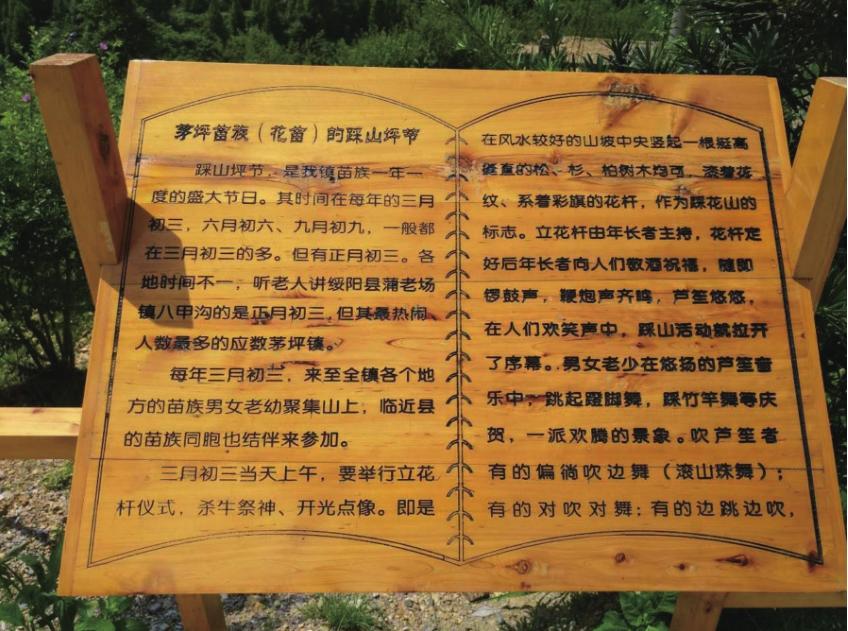 茅坪苗族（花苗）的踩山坪节
踩山坪节，是我镇苗族一年一
度的盛大节日。其时间在每年的三月
初三，六月初六、九月初九，一般都
在三月初三的多。但有正月初三。各
地时间不一，听老人讲绥阳县蒲老场
镇八甲沟的是正月初三，但其最热闹、
人数最多的应数茅坪镇。
每年三月初三，来至全镇各个地
方的苗族男女老幼聚集山上，临近县
的苗族同胞也结伴来参加。
三月初三当天上午，要举行立花
杆仪式，杀牛祭神、开光点像。即是
在风水较好的山坡中央竖起一根挺高
挺直的松、杉、柏树木均可，漆着花
纹、系着彩旗的花杆，作为踩花山的
标志。立花杆由年长者主持，花杆定
好后年长者向人们敬酒祝福，随即
锣鼓声，鞭炮声齐鸣，芦笙悠悠，
在人们欢笑声中，踩山活动就拉开
了序幕。男女老少在悠扬的芦笙音
乐中，跳起蹬脚舞，踩竹竿舞等庆
贺，一派欢腾的景象。吹芦笙者
有的偏徜吹边舞（滚山珠舞）；
有的对吹对舞；有的边跳边吹，